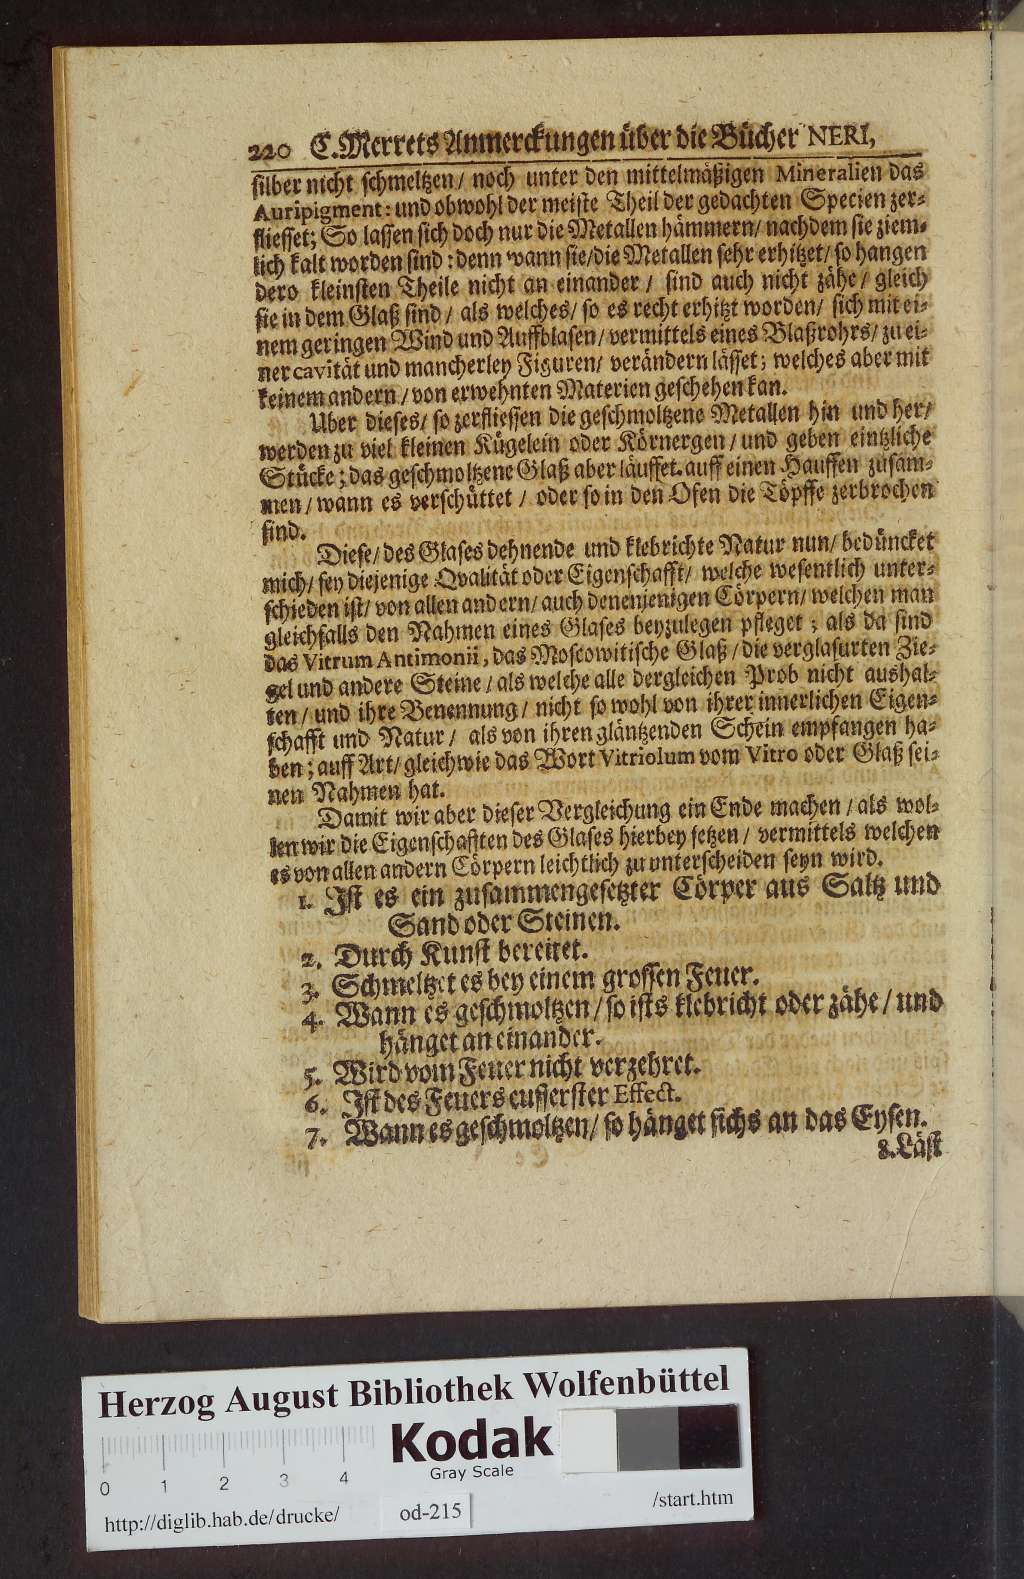 220 C. Merrets Anmerckungen über die Bücher NERI,
silber nicht schmeltzen/ noch unter den mittelmäßigen Mineralien das
Auripigment: und obwohl der meiste Theil der gedachten Specien zer-
fliesset; So lassen sich doch nur die Metallen hämmern/ nachdem sie ziem-
lich kalt worden sind: denn wann sie/die Metallen sehr erhitzet/ so hangen
dero kleinsten Theile nicht an einander/ sind auch nicht zähe/ gleich
sie in dem Glaß sind/ als welches/ so es recht erhitzt worden/ sich mit ei-
nem geringen Wind und Auffblasen/ vermittels eines Blaßrohrs/ zu ei-
ner cavität und mancherley Figuren/ verändern lässet; welches aber mit
keinem andern/ von erwehnten Materien geschehen kan.
Uber dieses/ so zerfliessen die geschmoltzene Metallen hin und her/
werden zu viel kleinen Kügelein oder Körnergen/ und geben eintzliche
Stücke; das geschmoltzene Glaß aber läuffet auff einen Hauffen zusam-
men/ wann es verschüttet/ oder so in den Ofen die Töpffe zerbrochen
sind.
Diese/ des Glases dehnende und klebrichte Natur nun/ bedüncket
mich/ sey diejenige Qvalität oder Eigenschafft/ welche wesentlich unter-
schieden ist/ von allen andern/ auch denenjenigen Cörpern/ welchen man
gleichfalls den Nahmen eines Glases beyzulegen pfleget; als da sind
das Vitrum Antimonii, das Moscowitische Glaß/ die verglasurten Zie-
gel und andere Steine/ als welche alle dergleichen Prob nicht aushal-
ten/ und ihre Benennung/ nicht so wohl von ihrer innerlichen Eigen-
schafft und Natur/ als von ihren gläntzenden Schein empfangen ha-
ben; auff Art/ gleichwie das Wort Vitriolum vom Vitro oder Glaß sei-
nen Nahmen hat.
Damit wir aber dieser Vergleichung ein Ende machen/ als wol-
len wir die Eigenschafften des Glases hierbey setzen/ vermittels welchen
es von allen andern Cörpern leichtlich zu unterscheiden seyn wird.
1. Ist es ein zusammengesetzter Cörper aus Saltz und
Sand oder Steinen.
2. Durch Kunst bereitet.
3. Schmeltzet es bey einem grossen Feuer.
4. Wann es geschmoltzen/ so ists klebricht oder zähe/ und
hänget an einander.
5. Wird vom Feuer nicht verzehret.
6. Ist des Feuers eusserster Effect.
7. Wann es geschmoltzen/ so hänget sichs an das Eysen.
8. Läst
Herzog August Bibliothek Wolfenbüttel
Kodak
Gray Scale
0 1 2 3 4
http://diglib.hab.de/drucke/ od-215 /start.htm